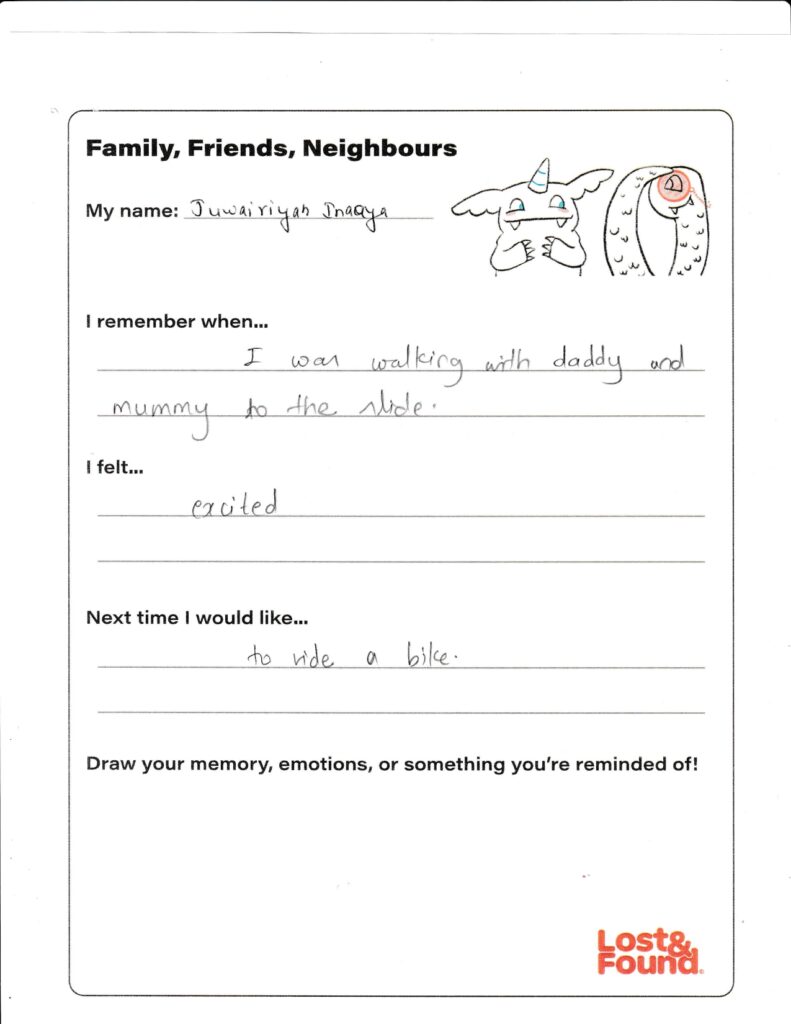 Family, Friends, Neighbours
My name: Juwairiyah Inaaya
I remember when...
I was walking with daddy and
mummy to the slide.
I felt...
excited
Next time I would like...
to ride a bike.
Draw your memory, emotions, or something you're reminded of!
Lost&
Found